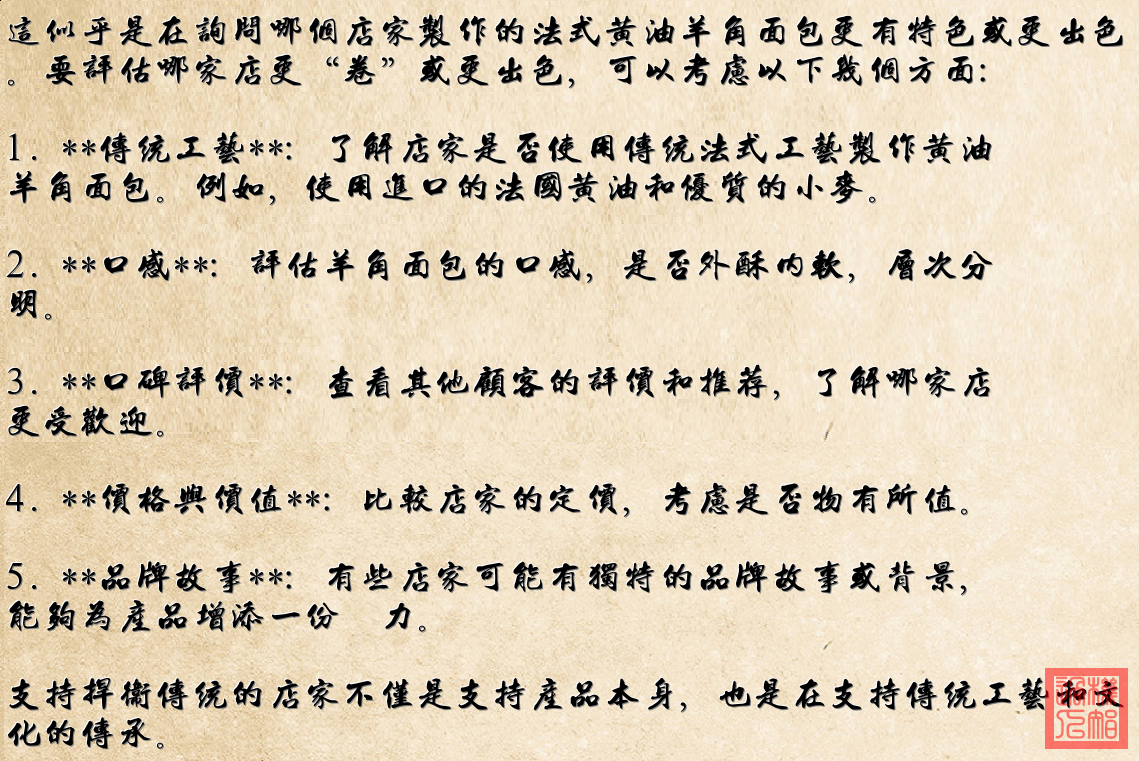 這似乎是在詢問哪個店家製作的法式黄油羊角面包更有特色或更出色
。要評估哪家店更“卷”或更出色，可以考慮以下幾個方面：
1. **傳統工藝**：了解店家是否使用傳統法式工藝製作黄油
羊角面包。例如，使用進口的法國黄油和優質的小麥。
2. **口感**：評估羊角面包的口感，是否外酥内軟，層次分
明。
3. **口碑評價**：查看其他顧客的評價和推荐，了解哪家店
更受歡迎。
4. **價格與價值**：比較店家的定價，考慮是否物有所值。
5. **品牌故事**：有些店家可能有獨特的品牌故事或背景，
能夠為産品增添一份 力。
支持捍衛傳統的店家不僅是支持産品本身，也是在支持傳統工藝和文
化的傳承。